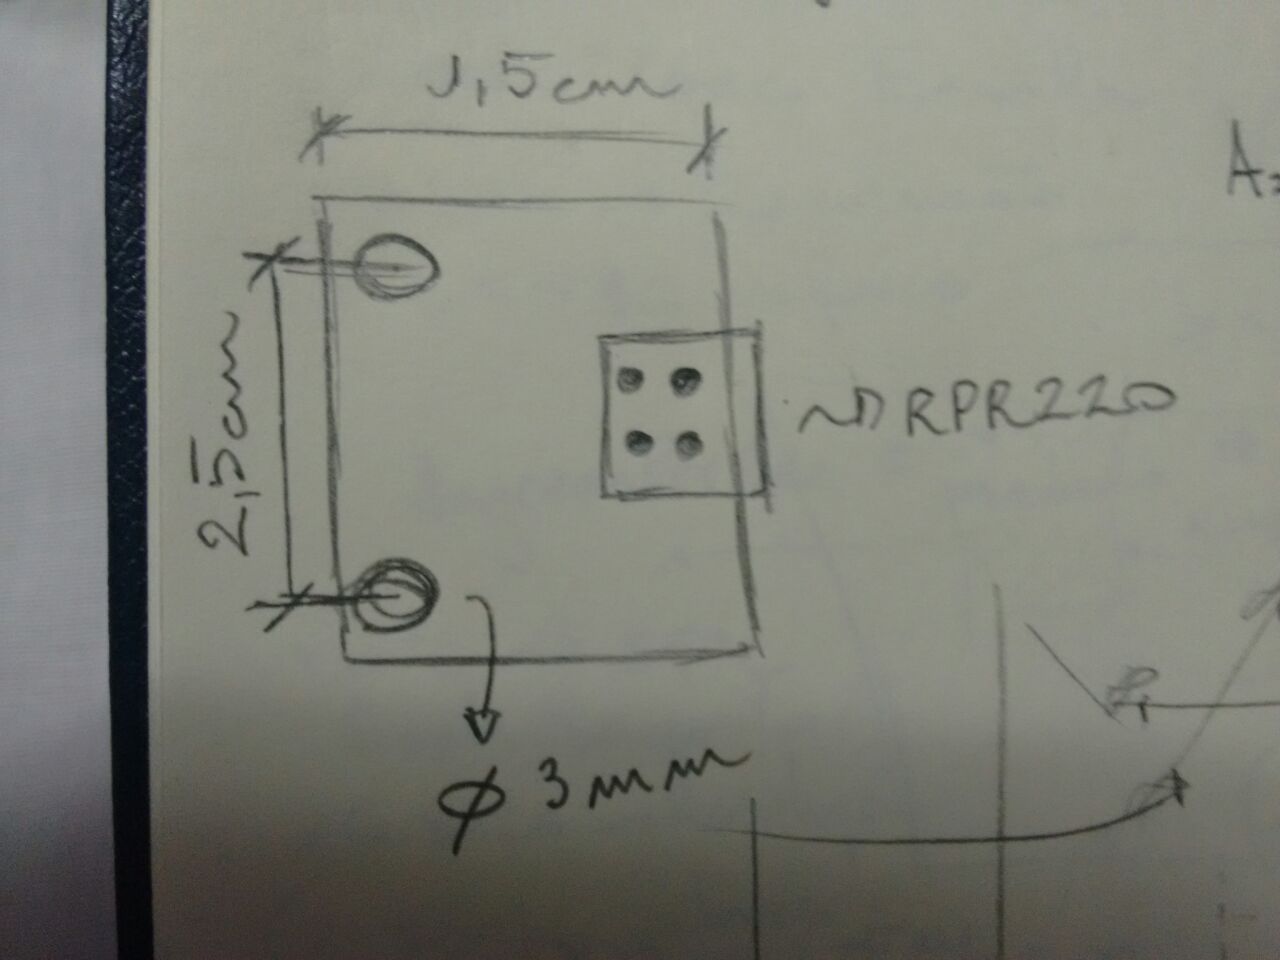 1,5cm
A=
2,5cm
RPR220
P1
φ 3mm